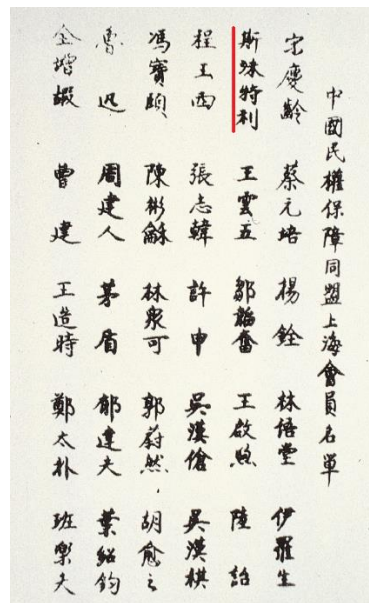 中國民權保障同盟上海會員名單
宋慶齡 蔡元培 楊銓 林語堂 伊羅生
斯沫特利 王雲五 鄒韜奮 王啟煦 陳詒
程王西 張志韓 許申 吳漢傖 吳漢棋
馮寶頤 陳彬龢 林眾可 郭蔚然 胡愈之
魯迅 周建人 茅盾 郁達夫 葉紹鈞
全增嘏 曹建 王造時 鄭太朴 班樂夫